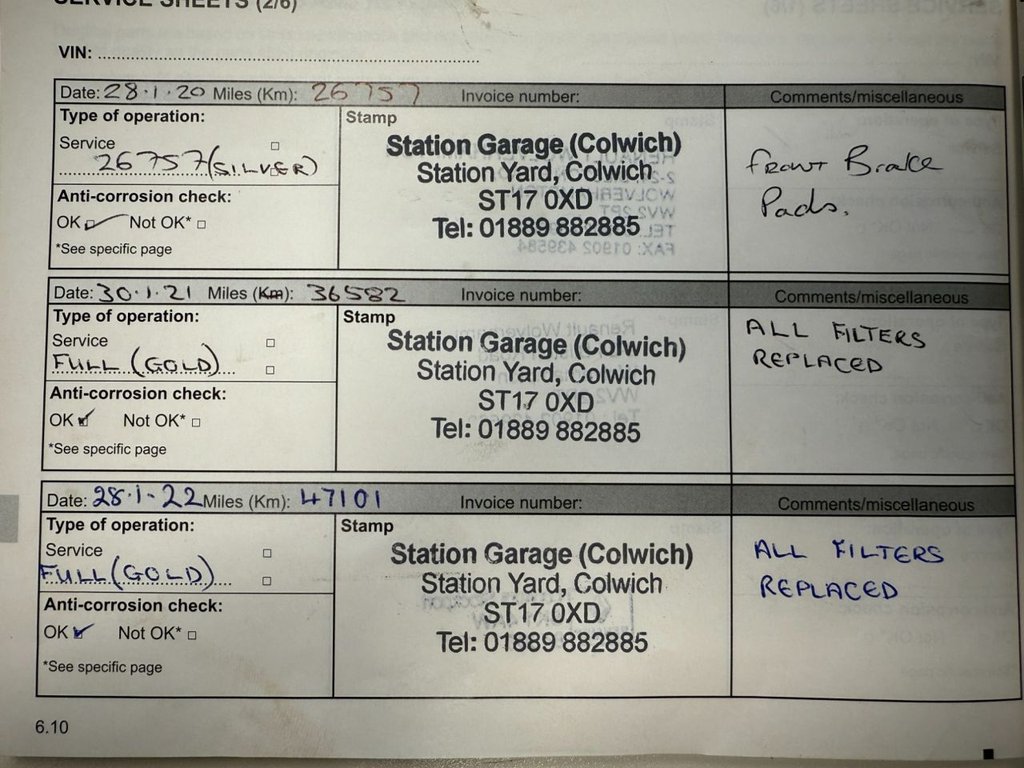 SERVICE SHEETS (2/6)
VIN: ....................................................................................
Date: 28.1.20 Miles (Km): 26757 Invoice number: Comments/miscellaneous
Type of operation: Stamp
Service □
26757 (SILVER)
Anti-corrosion check:
OK ✓ Not OK* □
*See specific page
Station Garage (Colwich)
Station Yard, Colwich
ST17 0XD
Tel: 01889 882885
front Brake
Pads.
Date: 30.1.21 Miles (Km): 36582 Invoice number: Comments/miscellaneous
Type of operation: Stamp
Service □
FULL (GOLD) □
Anti-corrosion check:
OK ✓ Not OK* □
*See specific page
Station Garage (Colwich)
Station Yard, Colwich
ST17 0XD
Tel: 01889 882885
ALL FILTERS
REPLACED
Date: 28.1.22 Miles (Km): 47101 Invoice number: Comments/miscellaneous
Type of operation: Stamp
Service □
FULL (GOLD) □
Anti-corrosion check:
OK ✓ Not OK* □
*See specific page
Station Garage (Colwich)
Station Yard, Colwich
ST17 0XD
Tel: 01889 882885
ALL FILTERS
REPLACED
6.10